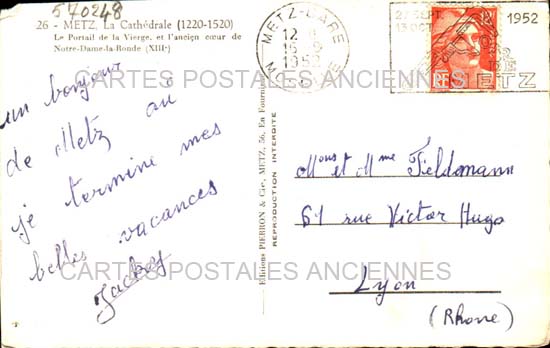 570248
26 - METZ. La Cathédrale (1220-1520)
Le Portail de la Vierge, et l'ancien cœur de
Notre-Dame-la-Ronde (XIIIe)
un bonjour
de Metz où
je termine mes
belles vacances
Jackey
Editions PIERRON & Cie, METZ, 56, En Fournirue
REPRODUCTION INTERDITE
METZ-GARE
1952
27 SEPT.
13 OCT
1952
METZ
Mons et Mme Fieldmann
61 rue Victor Hugo
Lyon
(Rhone)
CARTES POSTALES ANCIENNES
CARTES POSTALES ANCIENNES